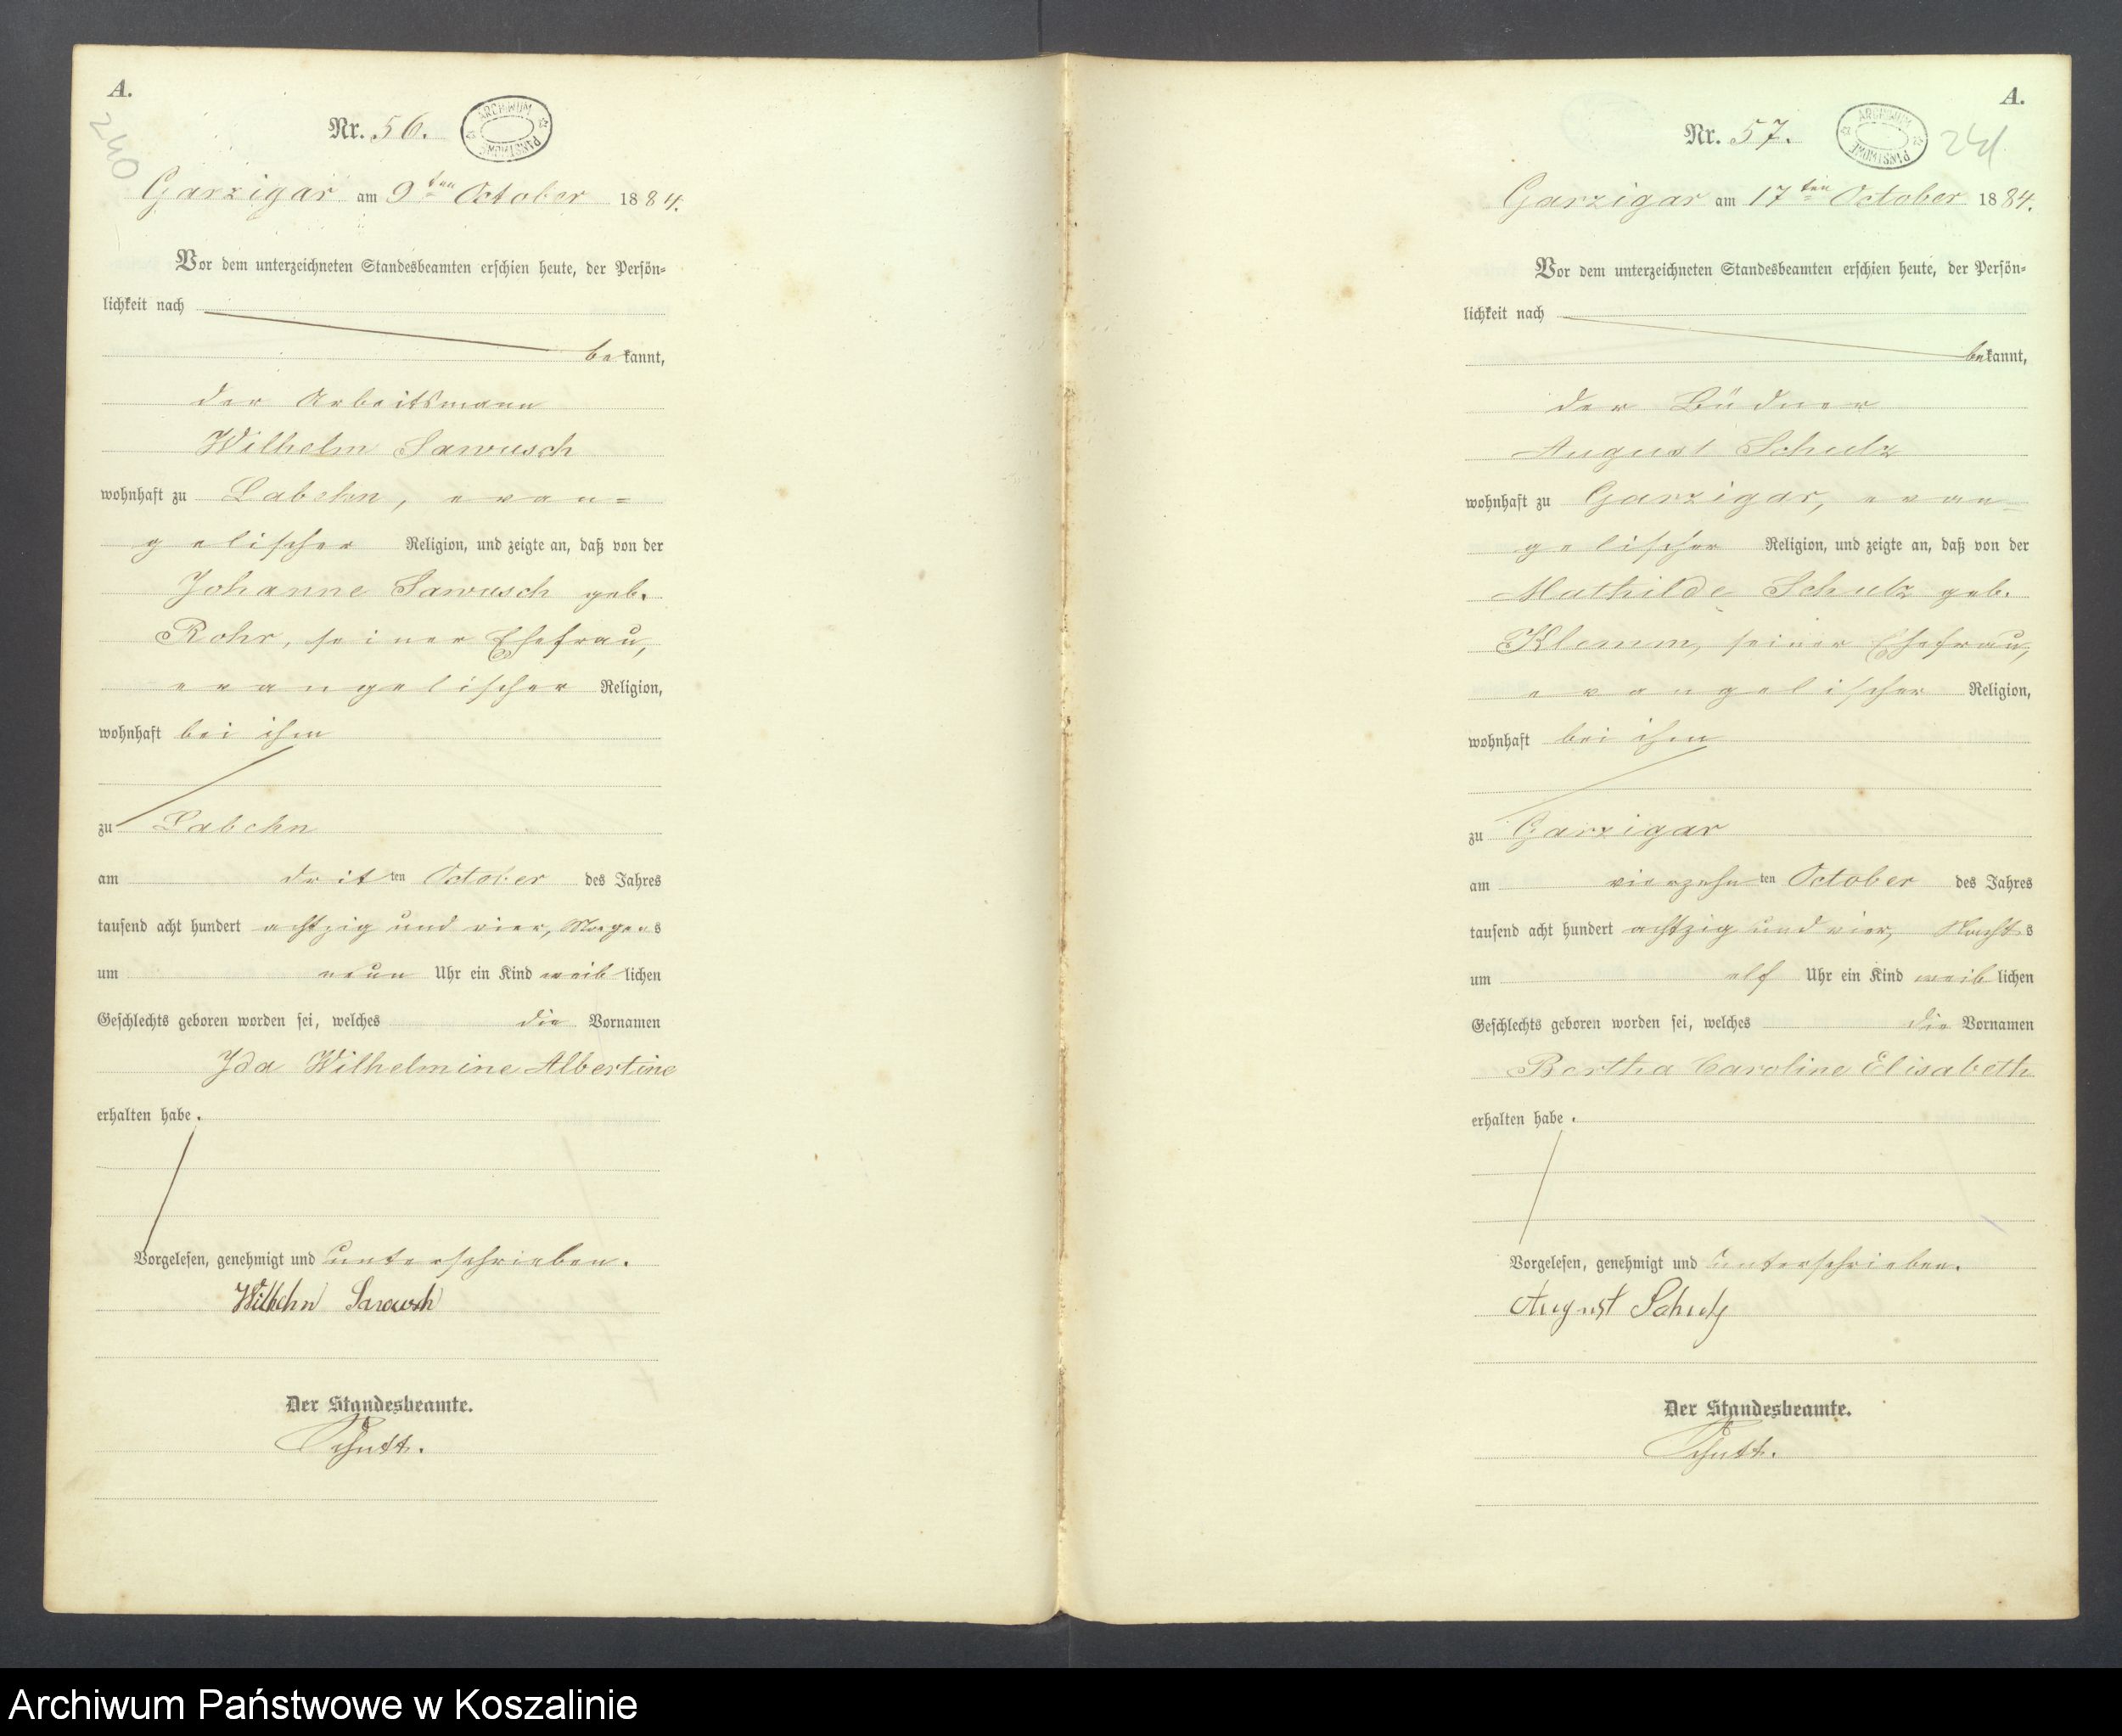 A.
240
Nr. 56.
ARCHIWUM PAŃSTWOWE
Garzigar am 9ten October 1884.
Vor dem unterzeichneten Standesbeamten erschien heute, der Persön=
lichkeit nach
bekannt,
der Arbeitsmann
Wilhelm Sawusch
wohnhaft zu Labehn, evan=
gelischer Religion, und zeigte an, daß von der
Johanne Sawusch geb.
Rohr, seiner Ehefrau,
evangelischer Religion,
wohnhaft bei ihm
zu Labehn
am dritten October des Jahres
tausend acht hundert achtzig und vier, Morgens
um neun Uhr ein Kind weiblichen
Geschlechts geboren worden sei, welches die Vornamen
Ida Wilhelmine Albertine
erhalten habe.
Vorgelesen, genehmigt und unterschrieben.
Wilhelm Sawusch
Der Standesbeamte.
A.
Nr. 57.
ARCHIWUM PAŃSTWOWE
241
Garzigar am 17ten October 1884.
Vor dem unterzeichneten Standesbeamten erschien heute, der Persön=
lichkeit nach
bekannt,
der Büdner
August Schulz
wohnhaft zu Garzigar, evan=
gelischer Religion, und zeigte an, daß von der
Mathilde Schulz geb.
Klemm, seiner Ehefrau,
evangelischer Religion,
wohnhaft bei ihm
zu Garzigar
am vierzehnten October des Jahres
tausend acht hundert achtzig und vier, Nachts
um elf Uhr ein Kind weiblichen
Geschlechts geboren worden sei, welches die Vornamen
Bertha Caroline Elisabeth
erhalten habe.
Vorgelesen, genehmigt und unterschrieben.
August Schulz
Der Standesbeamte.
Archiwum Państwowe w Koszalinie